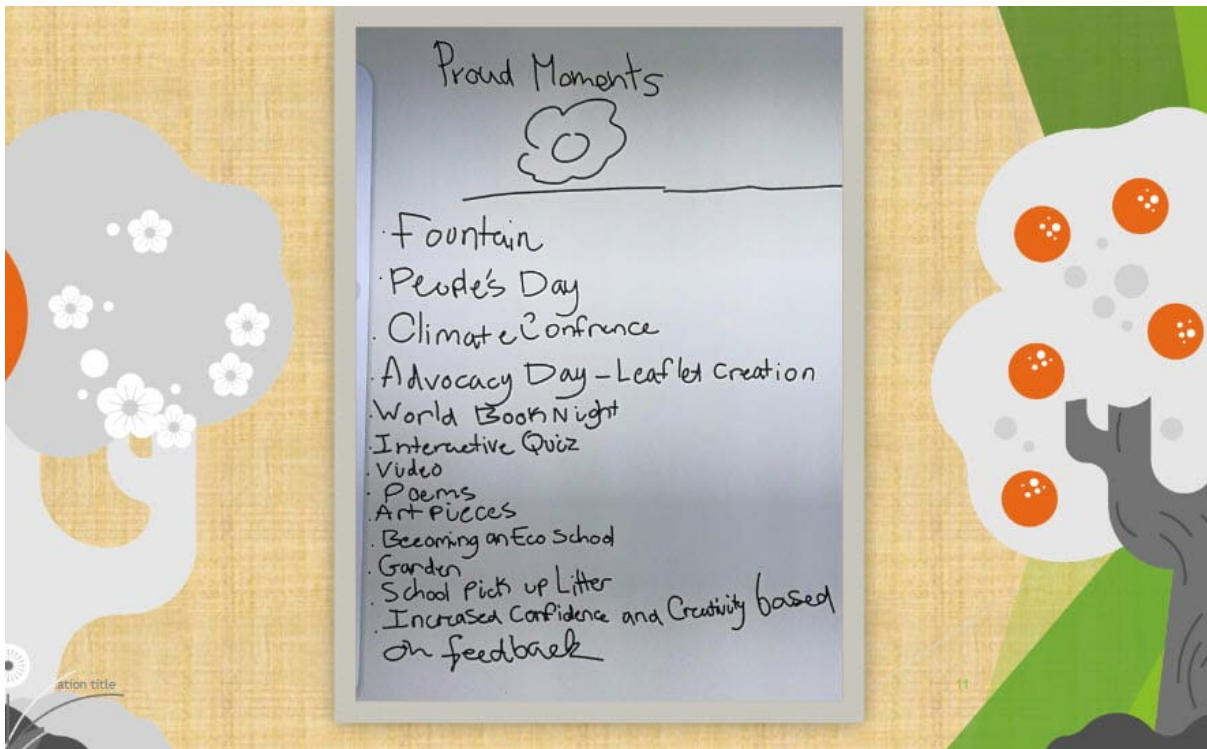 Proud Moments
· Fountain
· People's Day
· Climate Confrence
· Advocacy Day – Leaflet Creation
· World Book Night
· Interactive Quiz
· Video
· Poems
· Art Pieces
· Becoming an Eco School
· Garden
· School Pick up Litter
· Increased Confidence and Creativity based
on feedback
ation title
11